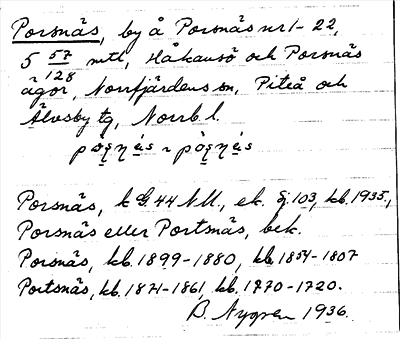 Porsnäs, by å Porsnäs nr 1-22,
5 57/128 mtl, Håkansö och Porsnäs
ägor, Norrfjärdens sn, Piteå och
Älvsby tg, Norrb. l.
Porsnäs, k G.44 N.U., ek. bl. 103, kb. 1935,
Porsnäs eller Portsnäs, bek.
Porsnäs, kb. 1899-1880, kb 1854-1807
Portsnäs, kb. 1871-1861, kb. 1770-1720.
B. Nygren 1936.